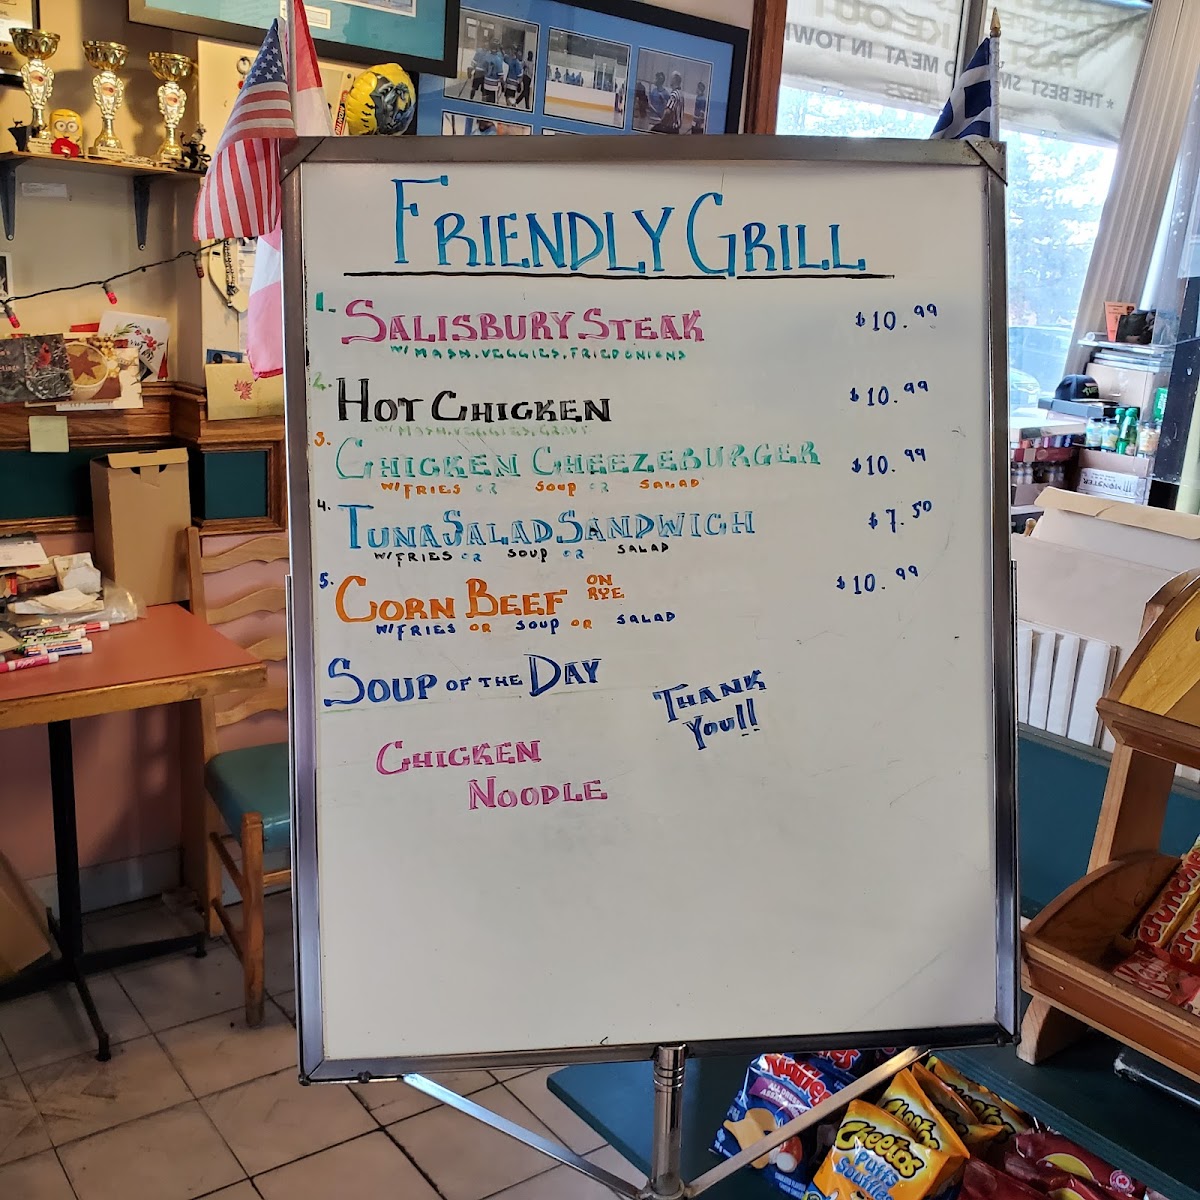 FRIENDLY GRILL
1. SALISBURY STEAK $10.99
W/ MASH. VEGGIES, FRIED ONIONS
2. HOT CHICKEN $10.99
W/ MASH. VEGGIES, GRAVY
3. CHICKEN CHEEZEBURGER $10.99
W/ FRIES OR SOUP OR SALAD
4. TUNA SALAD SANDWICH $7.50
W/ FRIES OR SOUP OR SALAD
5. CORN BEEF ON RYE $10.99
W/ FRIES OR SOUP OR SALAD
SOUP OF THE DAY
THANK YOU!!
CHICKEN
NOODLE
* THE BEST SM
MEAT IN TOW
MONSTER
Cheetos
Puffs
Soufflés
Crunchie